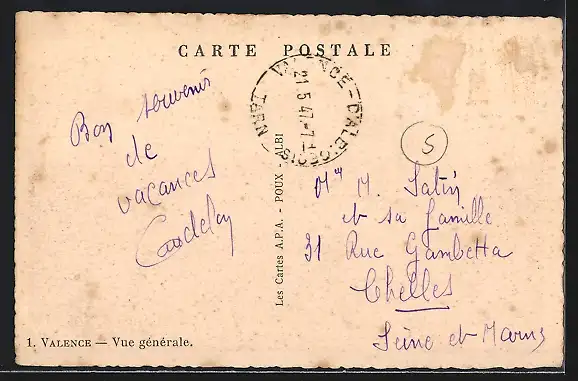 CARTE POSTALE
VALENCE - D'ALBIGEOIS
21.5.47.-7
TARN
Bon souvenir
de
vacances
Les Cartes A.P.A. - POUX - ALBI
S
M. Satin
et sa famille
31 Rue Gambetta
Chelles
Seine et Marne
1. VALENCE — Vue générale.